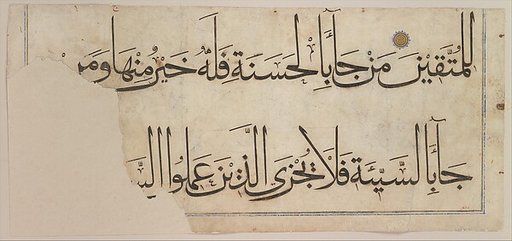 للمُتَّقِينَ مَن جَآءَ بِالحَسَنَةِ فَلَهُ خَيْرٌ مِنْهَا وَمَن
جَآءَ بِالسَّيِّئَةِ فَلَا يُجْزَى الَّذِينَ عَمِلُوا